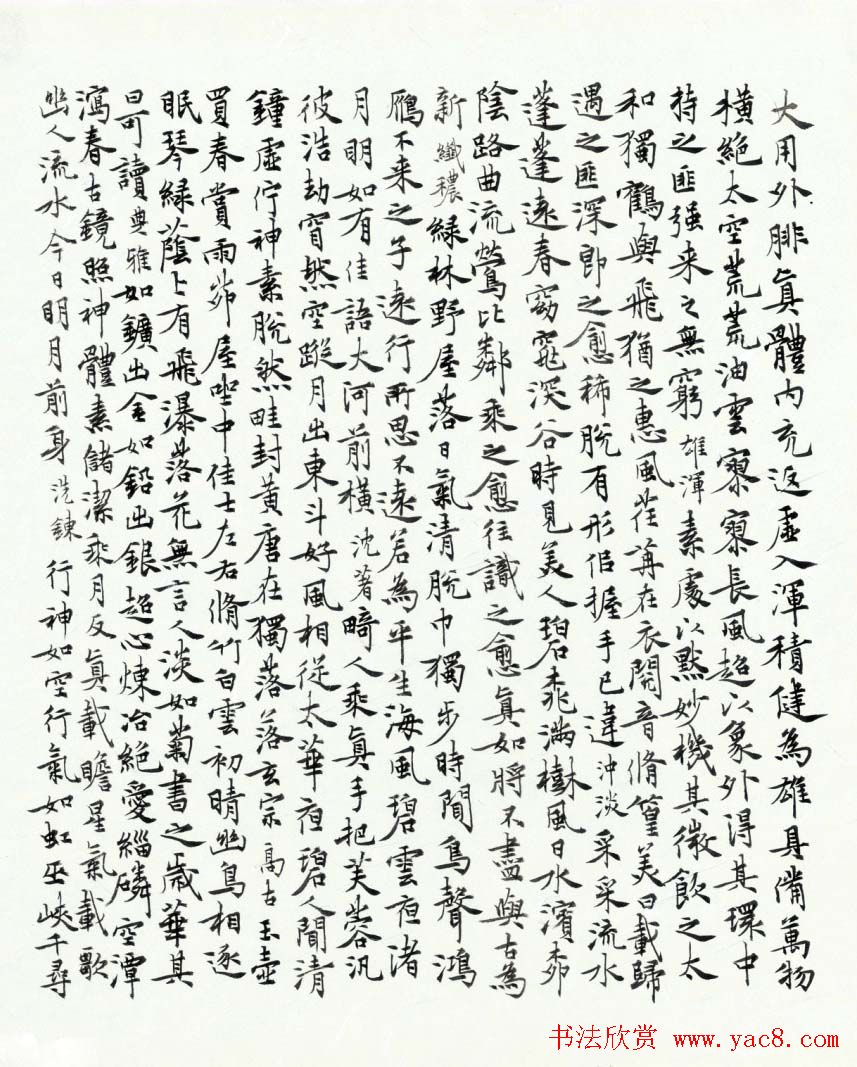 大用外腓真體內充返虛入渾積健為雄具備萬物
橫絕太空荒荒油雲寥寥長風超以象外得其環中
持之匪強来之無窮 雄渾 素處以默妙機其微飲之太
和獨鶴與飛猶之惠風荏苒在衣閱音脩篁美曰載歸
遇之匪深即之愈稀脫有形似握手已違 沖淡 采采流水
蓬蓬遠春窈窕深谷時見美人碧桃滿樹風日水濱柳
陰路曲流鶯比鄰乘之愈往識之愈真如將不盡與古為
新 纖穠 綠林野屋落日氣清脫巾獨步時聞鳥聲鴻
雁不来之子遠行所思不遠若為平生海風碧雲夜渚
月明如有佳語大河前橫 沈著 畸人乘真手把芙蓉汎
彼浩劫窅然空蹤月出東斗好風相從太華夜碧人聞清
鐘虛佇神素脫然畦封黃唐在獨落落玄宗 高古 玉壺
買春賞雨茆屋坐中佳士左右脩竹白雲初晴幽鳥相逐
眠琴綠蔭上有飛瀑落花無言人淡如菊書之歲華其
曰可讀 典雅 如鑛出金如鉛出銀超心煉冶絕愛緇磷空潭
瀉春古鏡照神體素儲潔乘月反真載瞻星氣載歌
幽人流水今日明月前身 洗鍊 行神如空行氣如虹巫峽千尋
书法欣赏 www.yac8.com